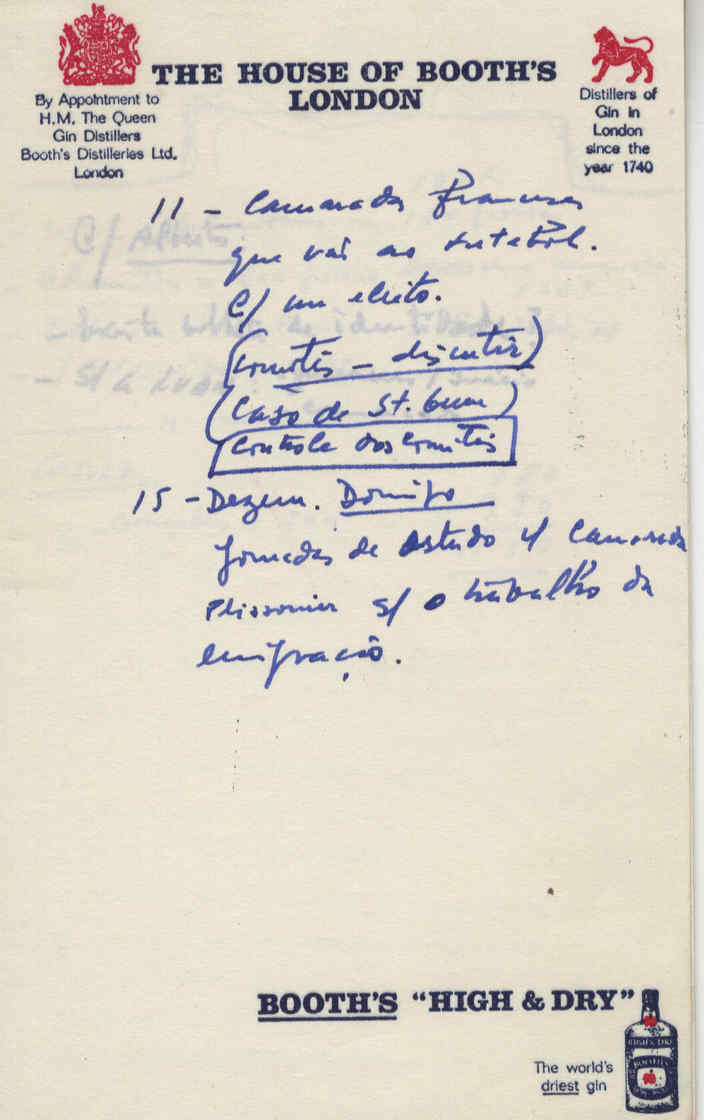 THE HOUSE OF BOOTH'S
LONDON
By Appointment to
H.M. The Queen
Gin Distillers
Booth's Distilleries Ltd.
London
Distillers of
Gin in
London
since the
year 1740
11 - Camarada
que vai ao futebol.
C/ um eleito.
(Comités - discutir)
(Caso de St.
Controle dos Comités
15 - Dezem. Domingo
Jornadas de estudo c/ Camarada
Plissonnier s/ o trabalho da
emigração.
C/ Alberto
BOOTH'S "HIGH & DRY"
HIGH & DRY
BOOTH'S
The world's
driest gin